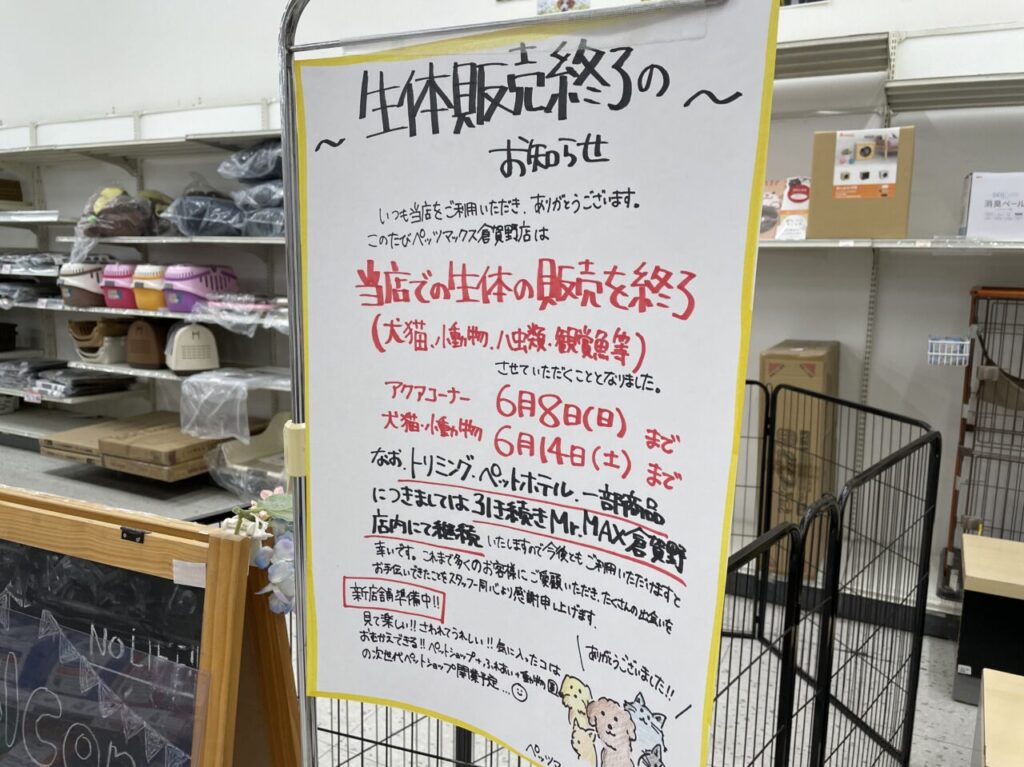 ～生体販売終了の～
お知らせ
いつも当店をご利用いただき、ありがとうございます。
このたびペッツマックス倉賀野店は
当店での生体の販売を終了
(犬猫、小動物、八虫類、観賞魚等)
させていただくこととなりました。
アクアコーナー 6月8日(日)まで
犬猫・小動物 6月14日(土)まで
なお、トリミング、ペットホテル、一部商品
につきましては引き続きMr.MAX倉賀野
店内にて継続いたしますので今後ともご利用いただけますと
幸いです。これまで多くのお客様にご愛顧いただき、たくさんの出会いを
お手伝いできたことをスタッフ一同心より感謝申し上げます。
新店舗準備中!!
見て楽しい!!さわれてうれしい!!気に入ったコは
おむかえできる!!ペットショップ+ふれあい動物園
の次世代ペットショップ開業予定...
ありがとうございました!!
ペッツマ
消臭ペール